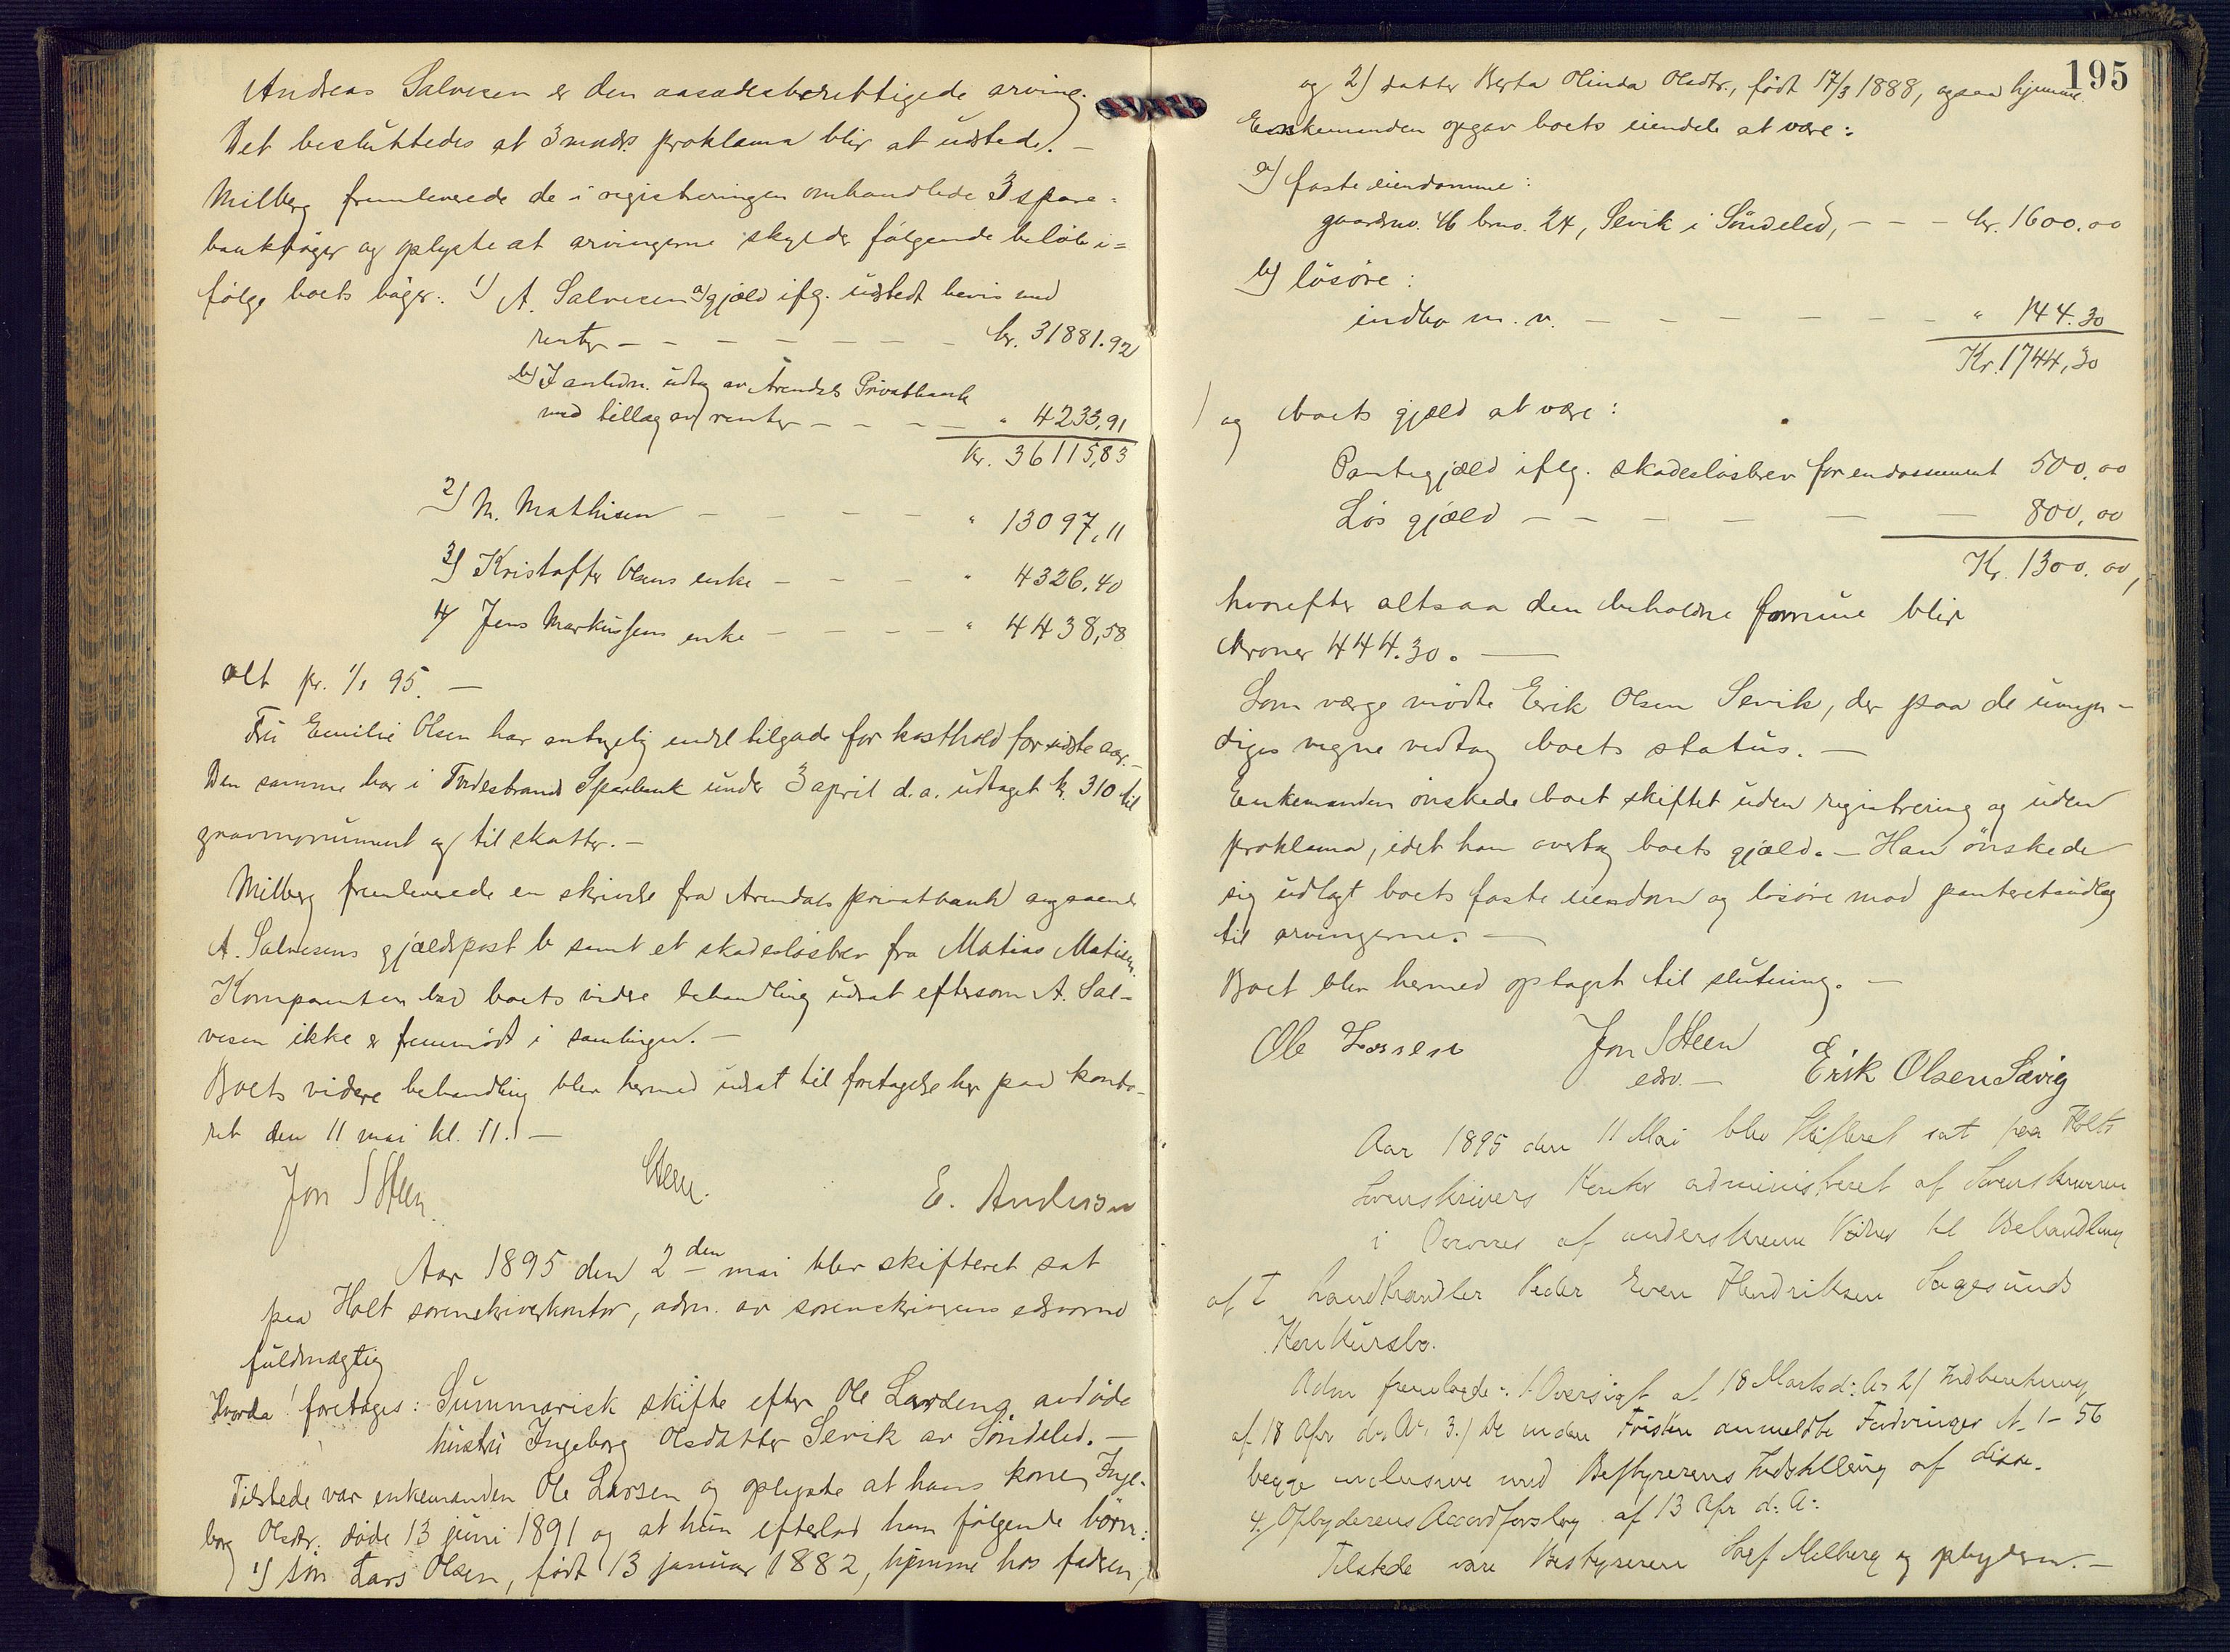 Andreas Salvesen er den aasædesberettigede arving.
Det besluttedes at 3 mndrs proklama blir at udstede. —
Milberg fremleverede de i registreringen omhandlede 3 spare=
bankbøger og oplyste at arvingerne skylder følgende beløb i=
følge boets bøger: 1) A. Salvesen a) gjæld iflg. udstedt bevis med
renter — — — — — — — kr. 31881.92
b) I anledn. udtag av Arendals Privatbank
med tillæg av renter — — — — " 4233,91
kr. 36115,83
2) M. Mathisen — — — — " 13097,11
3) Kristoffer Olsens enke — — — " 4326.40
4) Jens Markussens enke — — — — " 4438,58
alt pr. 1/1 95. —
Fru Emilie Olsen har endel tilgode for kosthold for sidste aar. —
Den samme har i Tvedestrands Sparebank under 3 april d. a. udtaget kr. 310 til
gravmonument og til skatter. —
Milberg fremleverede en skrivelse fra Arendals privatbank angaaende
A. Salvesens gjældspost b samt et skadesløsbrev fra Matias Matisen.
Komparenten bad boets videre behandling udsat eftersom A. Sal-
vesen ikke er fremmødt i samlingen. —
Boets videre behandling blev hermed udsat til foretagelse her paa konto-
ret den 11 mai kl. 11. —
Jon S Steen Steen. E. Anderson
Aar 1895 den 2den mai blev skifteret sat
paa Holt sorenskriverkontor, adm. av sorenskriverens edsvorne
fuldmægtig
Hvorda! foretages: Summarisk skifte efter Ole Larsens avdøde
hustru Ingeborg Olsdatter Sevik av Søndeled. —
Tilstede var enkemanden Ole Larsen og oplyste at hans kone, Inge-
borg Olsdtr. døde 13 juni 1891 og at hun efterlod ham følgende børn:
1) søn Lars Olsen, født 13 januar 1882, hjemme hos faderen,
195
og 2) datter Berta Olinda Olsdtr., født 17/3 1888, ogsaa hjemme.
Enkemanden opgav boets eiendele at være:
a) faste eiendomme:
gaardsno. 46 brno. 24, Sevik i Søndeled, — — — kr. 1600.00
b) løsøre:
indbo m. v. — — — — — — — " 144.30
Kr. 1744,30
og boets gjæld at være:
Pantegjæld iflg. skadesløsbrev for endossement 500,00
Løs gjæld — — — — — — 800,00
Kr. 1300.00,
hvorefter altsaa den beholdne formue blir
kroner 444.30. —
Som værge mødte Erik Olsen Sevik, der paa de umyn-
diges vegne vedtog boets status. —
Enkemanden ønskede boet skiftet uden registrering og uden
proklama, idet han overtog boets gjæld. — Han ønskede
sig udlagt boets faste eiendom og løsøre mod panteretsudlæg
til arvingerne. —
Boet blev hermed optaget til slutning. —
Ole Larsen Jon S Steen Erik Olsen Sævig
edsv. —
Aar 1895 den 11 Mai blev Skifteret sat paa Holts
Sorenskrivers Kontor administreret af Sorenskriveren
i Overvær af underskrevne Vidner til Behandling
af Landhandler Peder Even Hendriksen Sagesunds
Konkursbo.
Adm fremlagde: 1. Oversigt af 18 Marts d: A: 2) Indberetning
af 18 Apr d: A: 3.) De inden Fristen anmeldte Fordringer N. 1 – 56
begge inclusive med Bestyrerens Indstilling af disse.
4. Opbyderens Accordforslag af 13 Apr d: A:
Tilstede vare Bestyreren Sagf Milberg og opbyderen. —